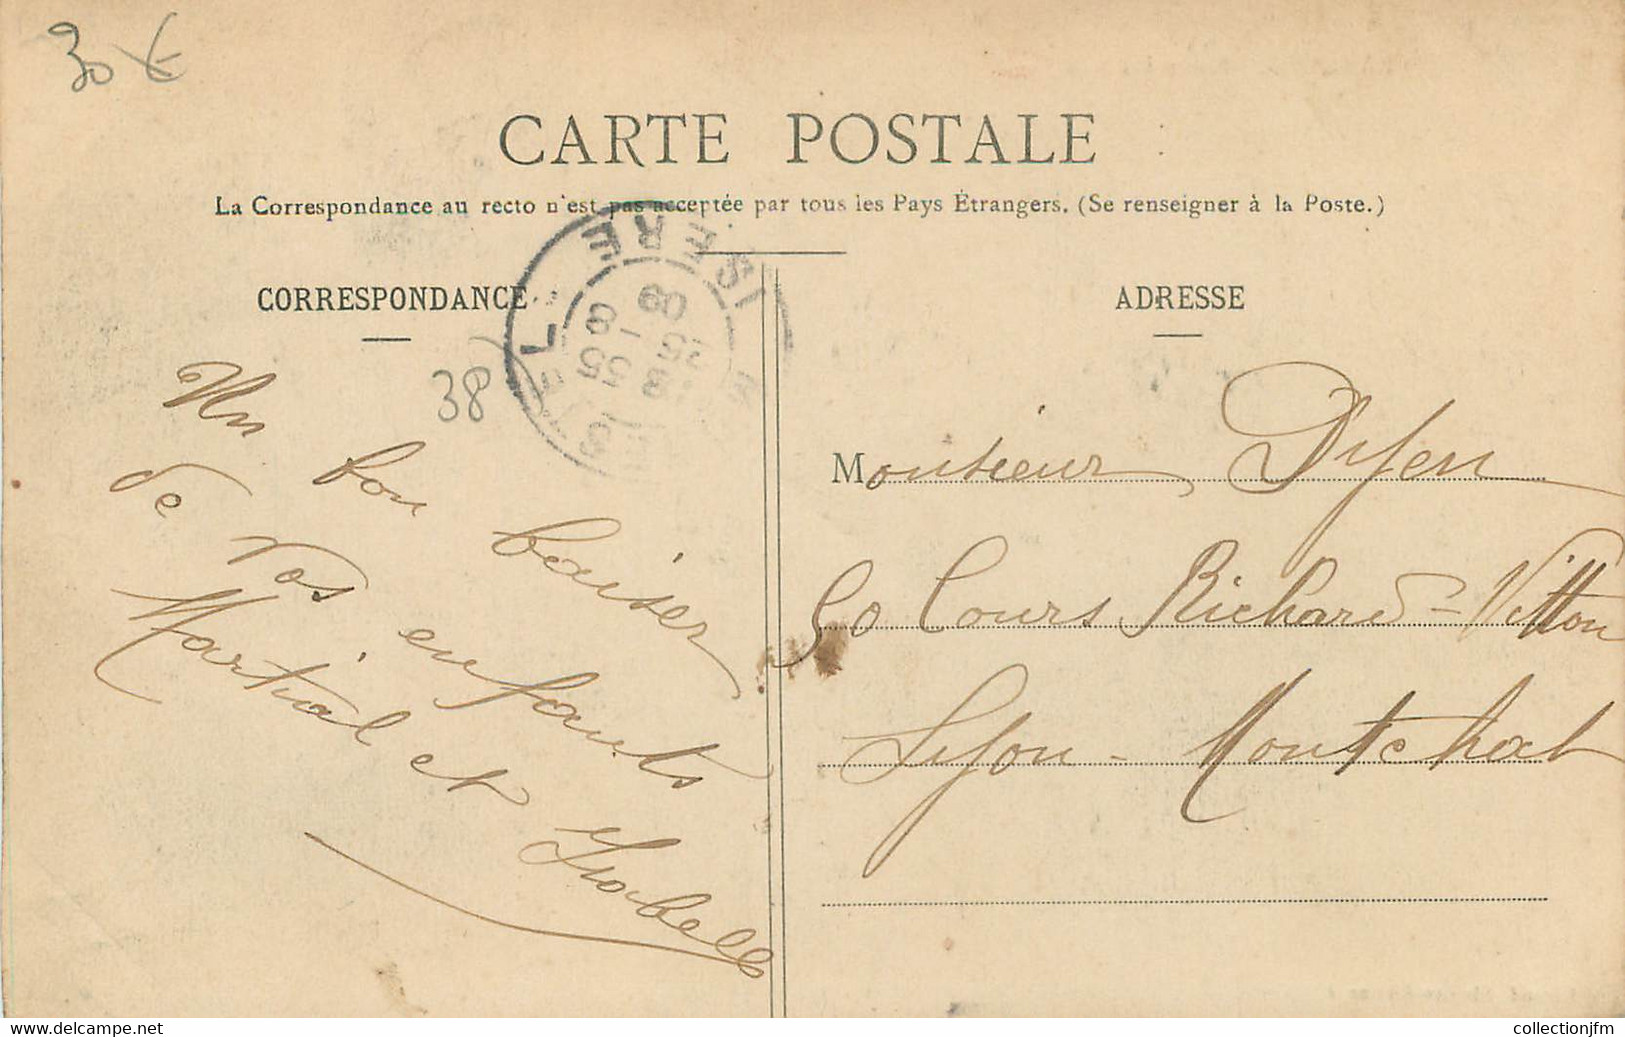 30 €
CARTE POSTALE
La Correspondance au recto n'est pas acceptée par tous les Pays Étrangers. (Se renseigner à la Poste.)
CORRESPONDANCE
ADRESSE
38
ISERE
18 55
25 - 8
09
Un bon baiser
de vos enfants
Martial et Isabelle
Monsieur
50 Cours Richard-Vitton
Lyon - Montchat
collectionjfm